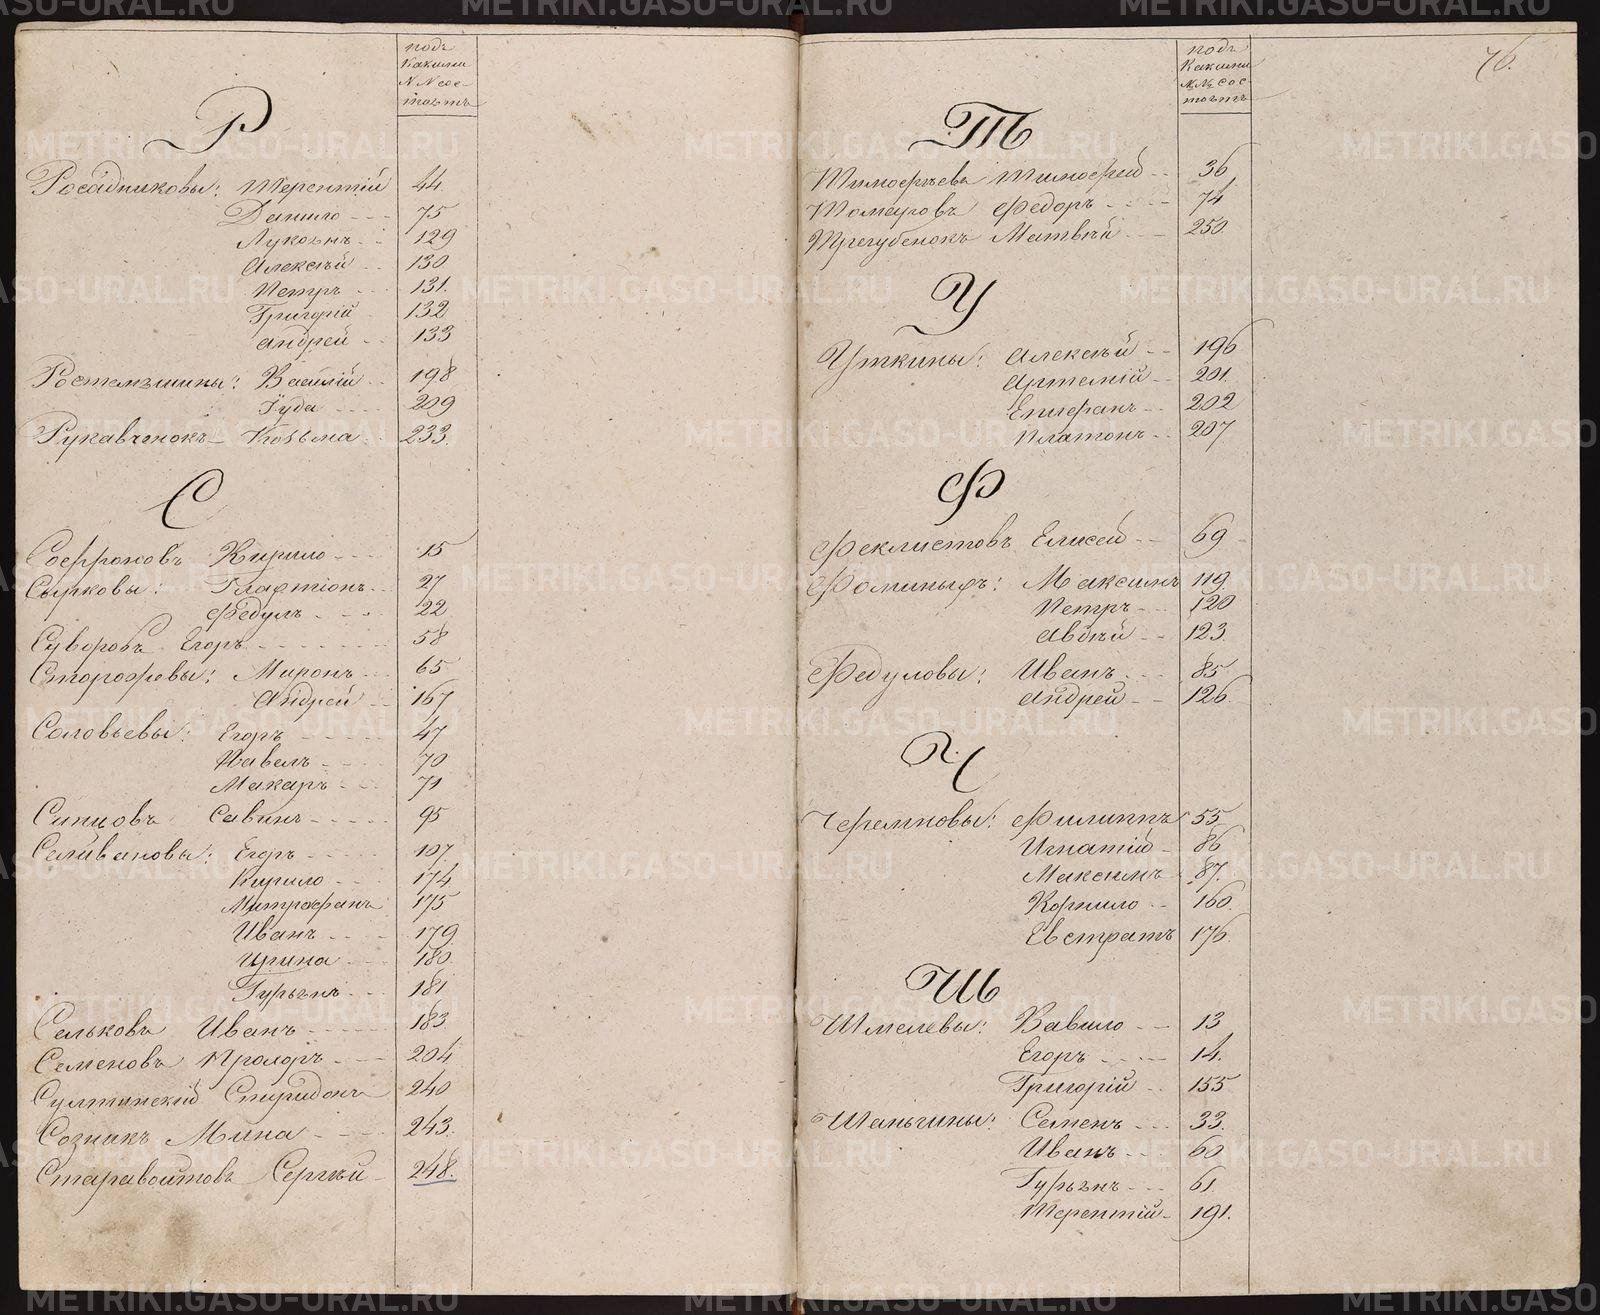 подъ
Какими
N N сос-
тоятъ
Р
Росадниковы: Терентій 44.
Данило 75
Лукоянъ 129
Алексѣй 130
Петръ 131.
Григорій 132
Андрей 133
Василій 198
Іуда 209
Рукавченокъ Козьма 233.
С
Софроновъ Кирило 15
Сырковы: Галактіонъ 27
Федулъ 22
Суворовъ Егоръ 58
Сторожевы: Миронъ 65
Андрей 167
Соловьевы: Егоръ 47
Павелъ 70
Макаръ 71
Сипцовъ Савинъ 95
Селивановы: Егоръ 107
Кирило 174
Митрофанъ 175
Иванъ 179
Ирина 180
Гурьянъ 181
Сельковъ Иванъ 183
Семеновъ Прохоръ 204
Султинскій Спиридонъ 240
Созникъ Мина 243.
Старавойтовъ Сергѣй 248.
76.
подъ
Какими
№ № сос-
тоятъ
Т
Тимофѣевъ Тимофей 36
Федоръ 74
Трегубенокъ Матвѣй 250.
У
Уткины: Алексѣй 196
Артемій 201.
Епифанъ 202
Платонъ 207
Ф
Феклистовъ Елисей 69
Фоминыхъ: Максимъ 119.
Петръ 120
Авдѣй 123.
Федуловы: Иванъ 85
Андрей 126.
Ч
Черемновы: Филиппъ 55
Игнатій 86
Максимъ 87.
Корнило 160.
Евстратъ 176.
Ш
Шмелевы: Вавило 13
Егоръ 14.
Григорій 155
Шаньгины: Семенъ 33.
Иванъ 60
Гурьянъ 61
Терентій 191.
METRIKI.GASO-URAL.RU